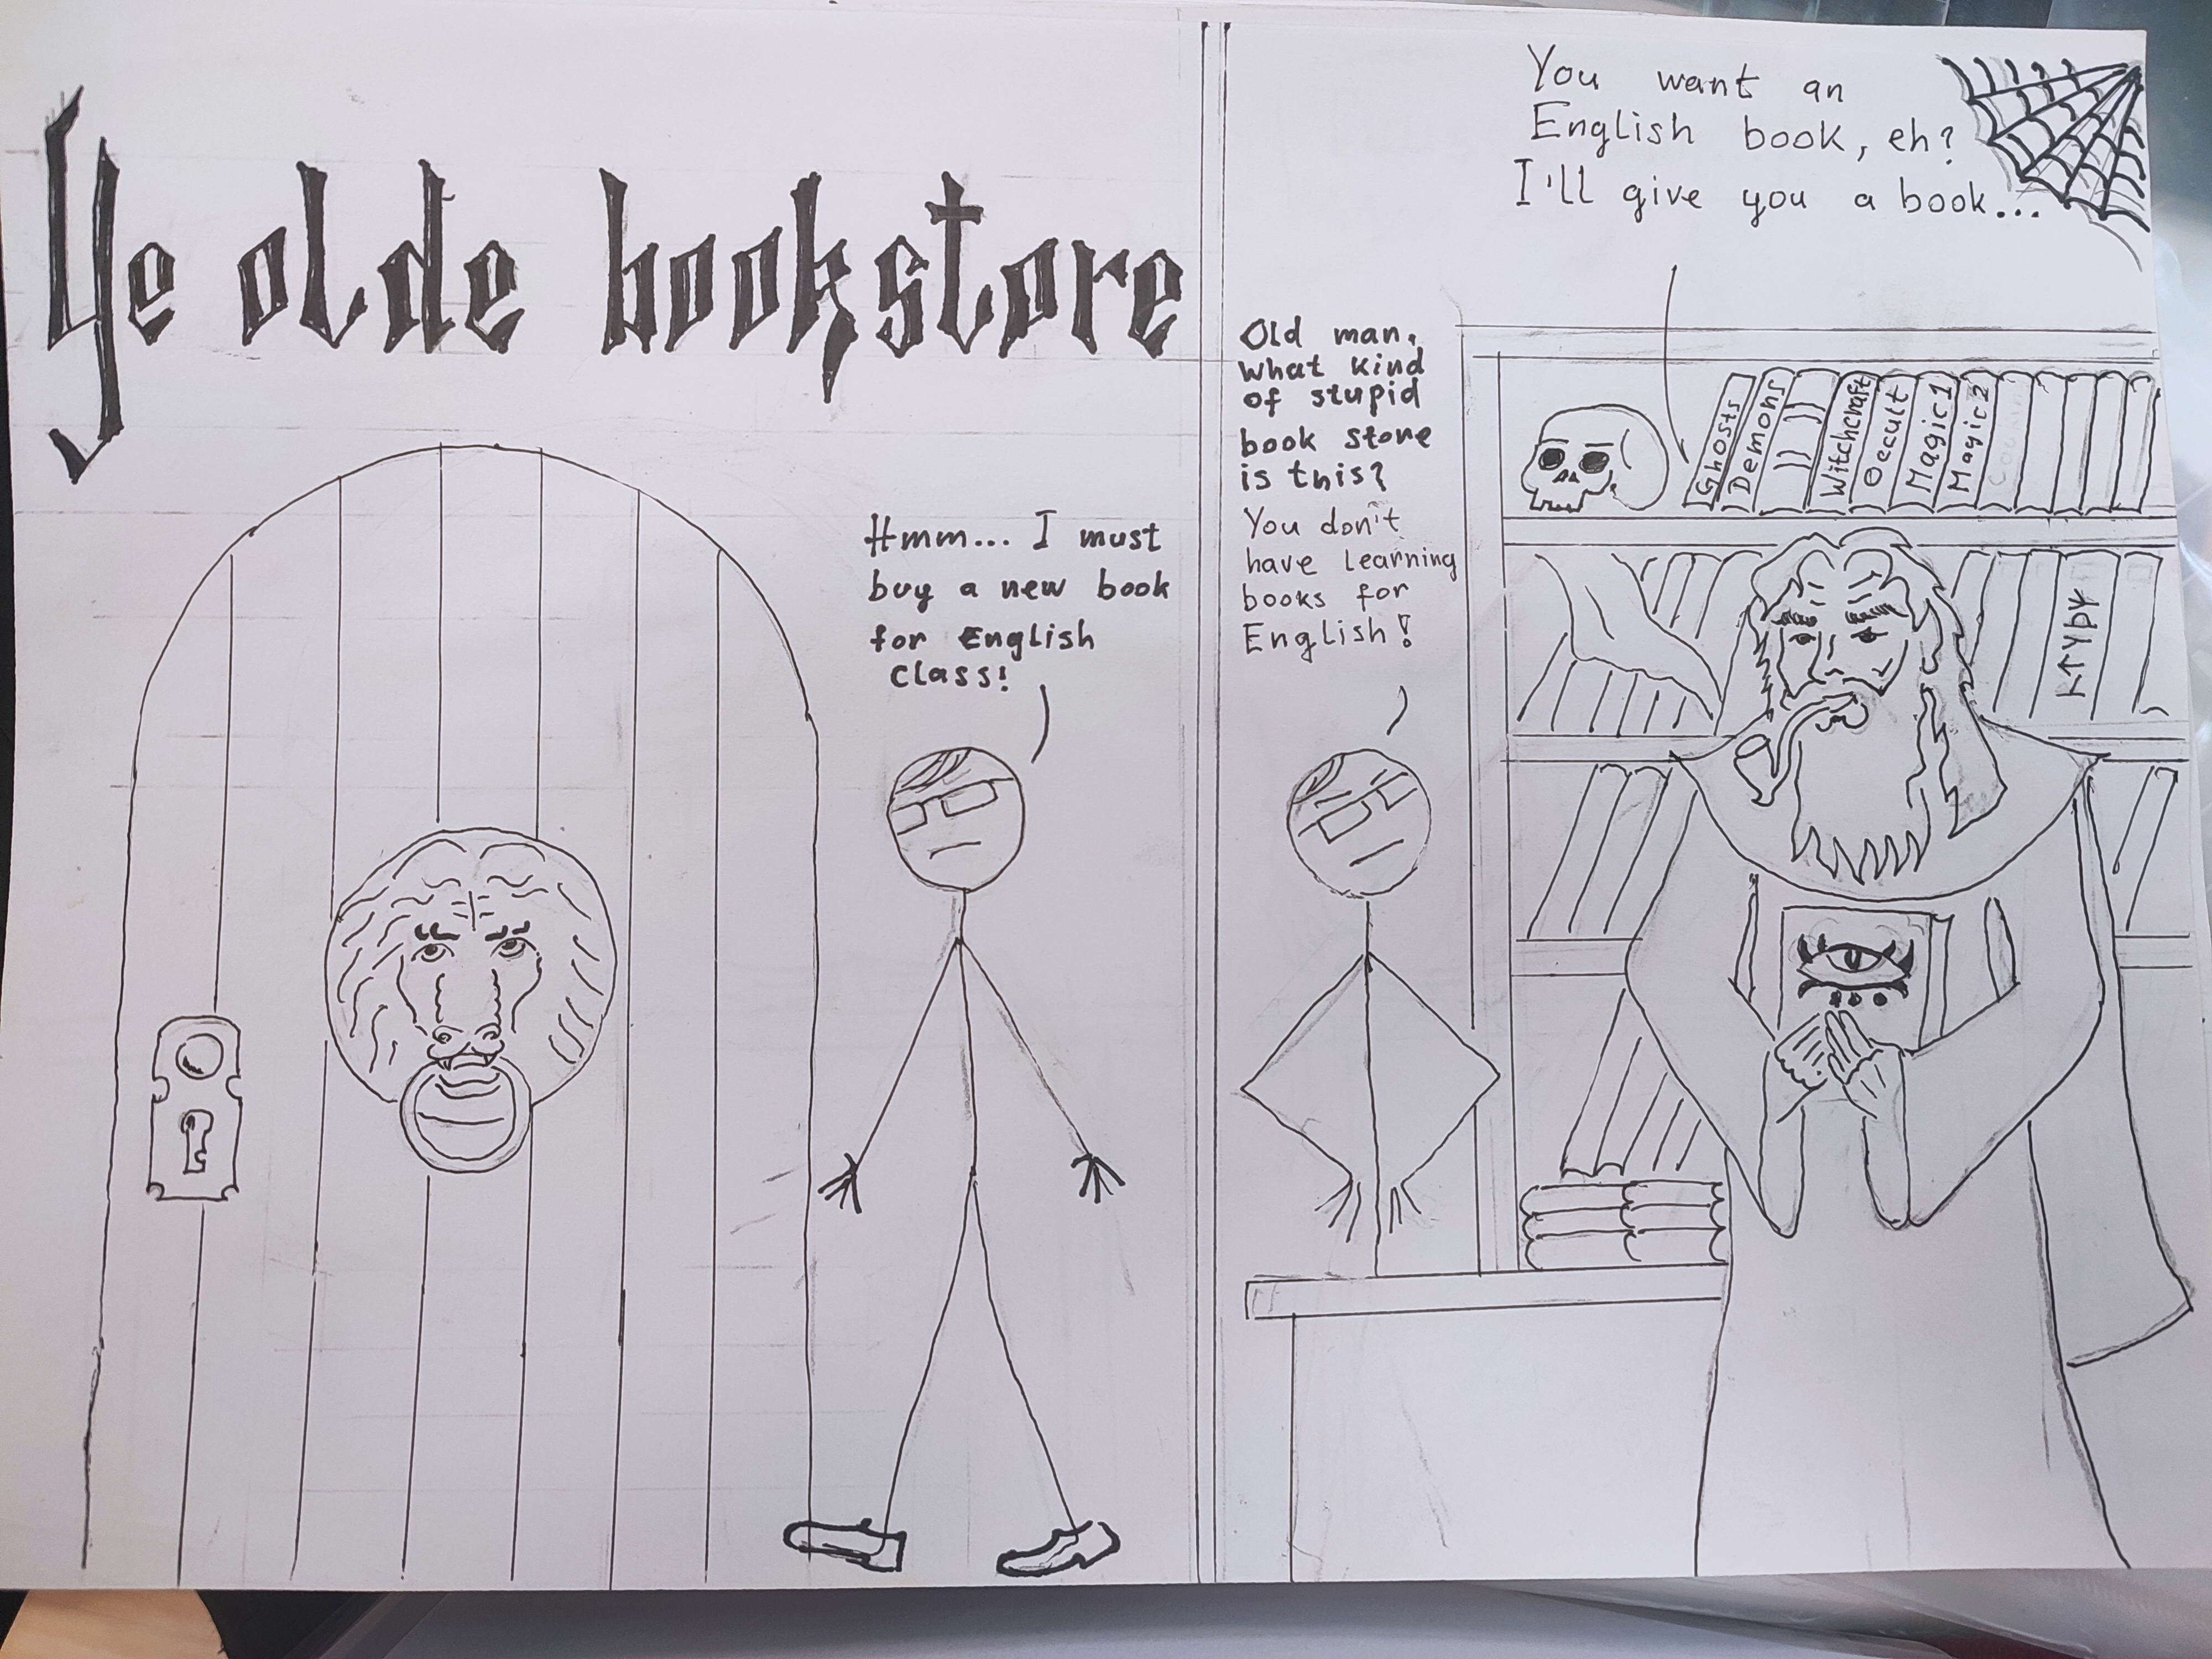 Ye olde bookstore
Hmm... I must
buy a new book
for English
class!
Old man,
what kind
of stupid
book store
is this?
You don't
have learning
books for
English!
You want an
English book, eh?
I'll give you a book...
Ghosts
Demons
Witchcraft
Occult
Magic 1
Magic 2